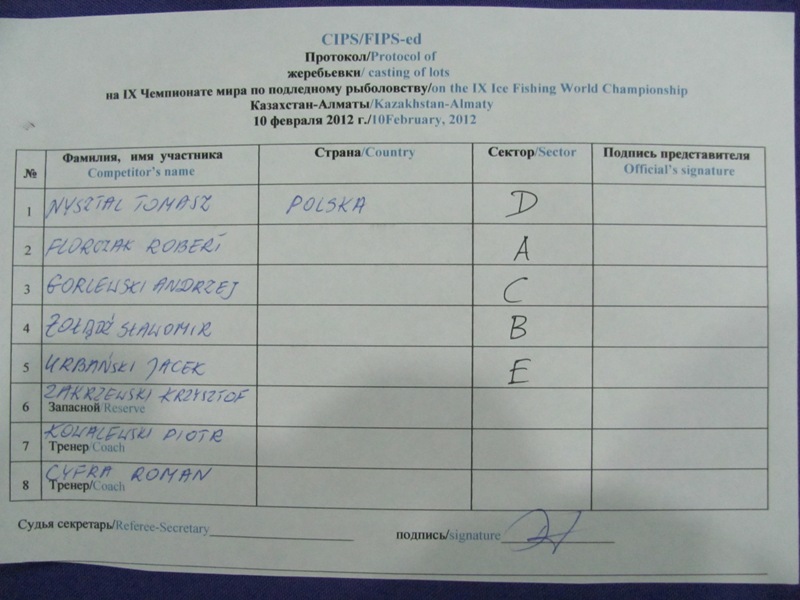 CIPS/FIPS-ed
Протокол/Protocol of
жеребьевки/ casting of lots
на IX Чемпионате мира по подледному рыболовству/on the IX Ice Fishing World Championship
Казахстан-Алматы/Kazakhstan-Almaty
10 февраля 2012 г./10February, 2012
№ Фамилия, имя участника Страна/Country Сектор/Sector Подпись представителя
Competitor's name Official's signature
1 NYSZTAL TOMASZ POLSKA D
2 FLORCZAK ROBERT A
3 GORLEWSKI ANDRZEJ C
4 ŻOŁĄDŹ SŁAWOMIR B
5 URBAŃSKI JACEK E
ZAKRZEWSKI KRZYSZTOF
6 Запасной/Reserve
KOWALEWSKI PIOTR
7 Тренер/Coach
CYFRA ROMAN
8 Тренер/Coach
Судья секретарь/Referee-Secretary подпись/signature